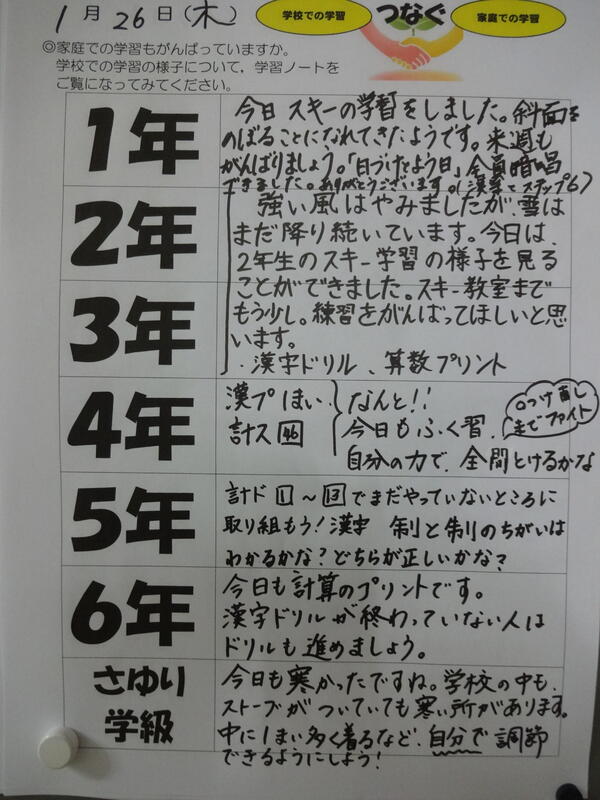 1月26日(木)
学校での学習 つなぐ 家庭での学習
◎家庭での学習もがんばっていますか。
学校での学習の様子について，学習ノートを
ご覧になってみてください。
1年
今日スキーの学習をしました。斜面を
のぼることになれてきたようです。来週も
がんばりましょう。「日づけとよう日」全員暗唱
できました。ありがとうございます。(漢字とステップ67)
2年
3年
強い風はやみましたが、雪は
まだ降り続いています。今日は、
2年生のスキー学習の様子を見る
ことができました。スキー教室まで
もう少し。練習をがんばってほしいと思
います。
・漢字ドリル、算数プリント
4年
漢プ1まい
計ス46
なんと!!
今日もふく習、
自分の力で、全問とけるかな
○つけ直し
までファイト
5年
計ド1～13でまだやっていないところに
取り組もう!漢字 制と
のちがいは
わかるかな?どちらが正しいかな?
6年
今日も計算のプリントです。
漢字ドリルが終わっていない人は
ドリルも進めましょう。
さゆり
学級
今日も寒かったですね。学校の中も、
ストーブがついていても寒い所があります。
中に1まい多く着るなど、自分で調節
できるようにしよう!